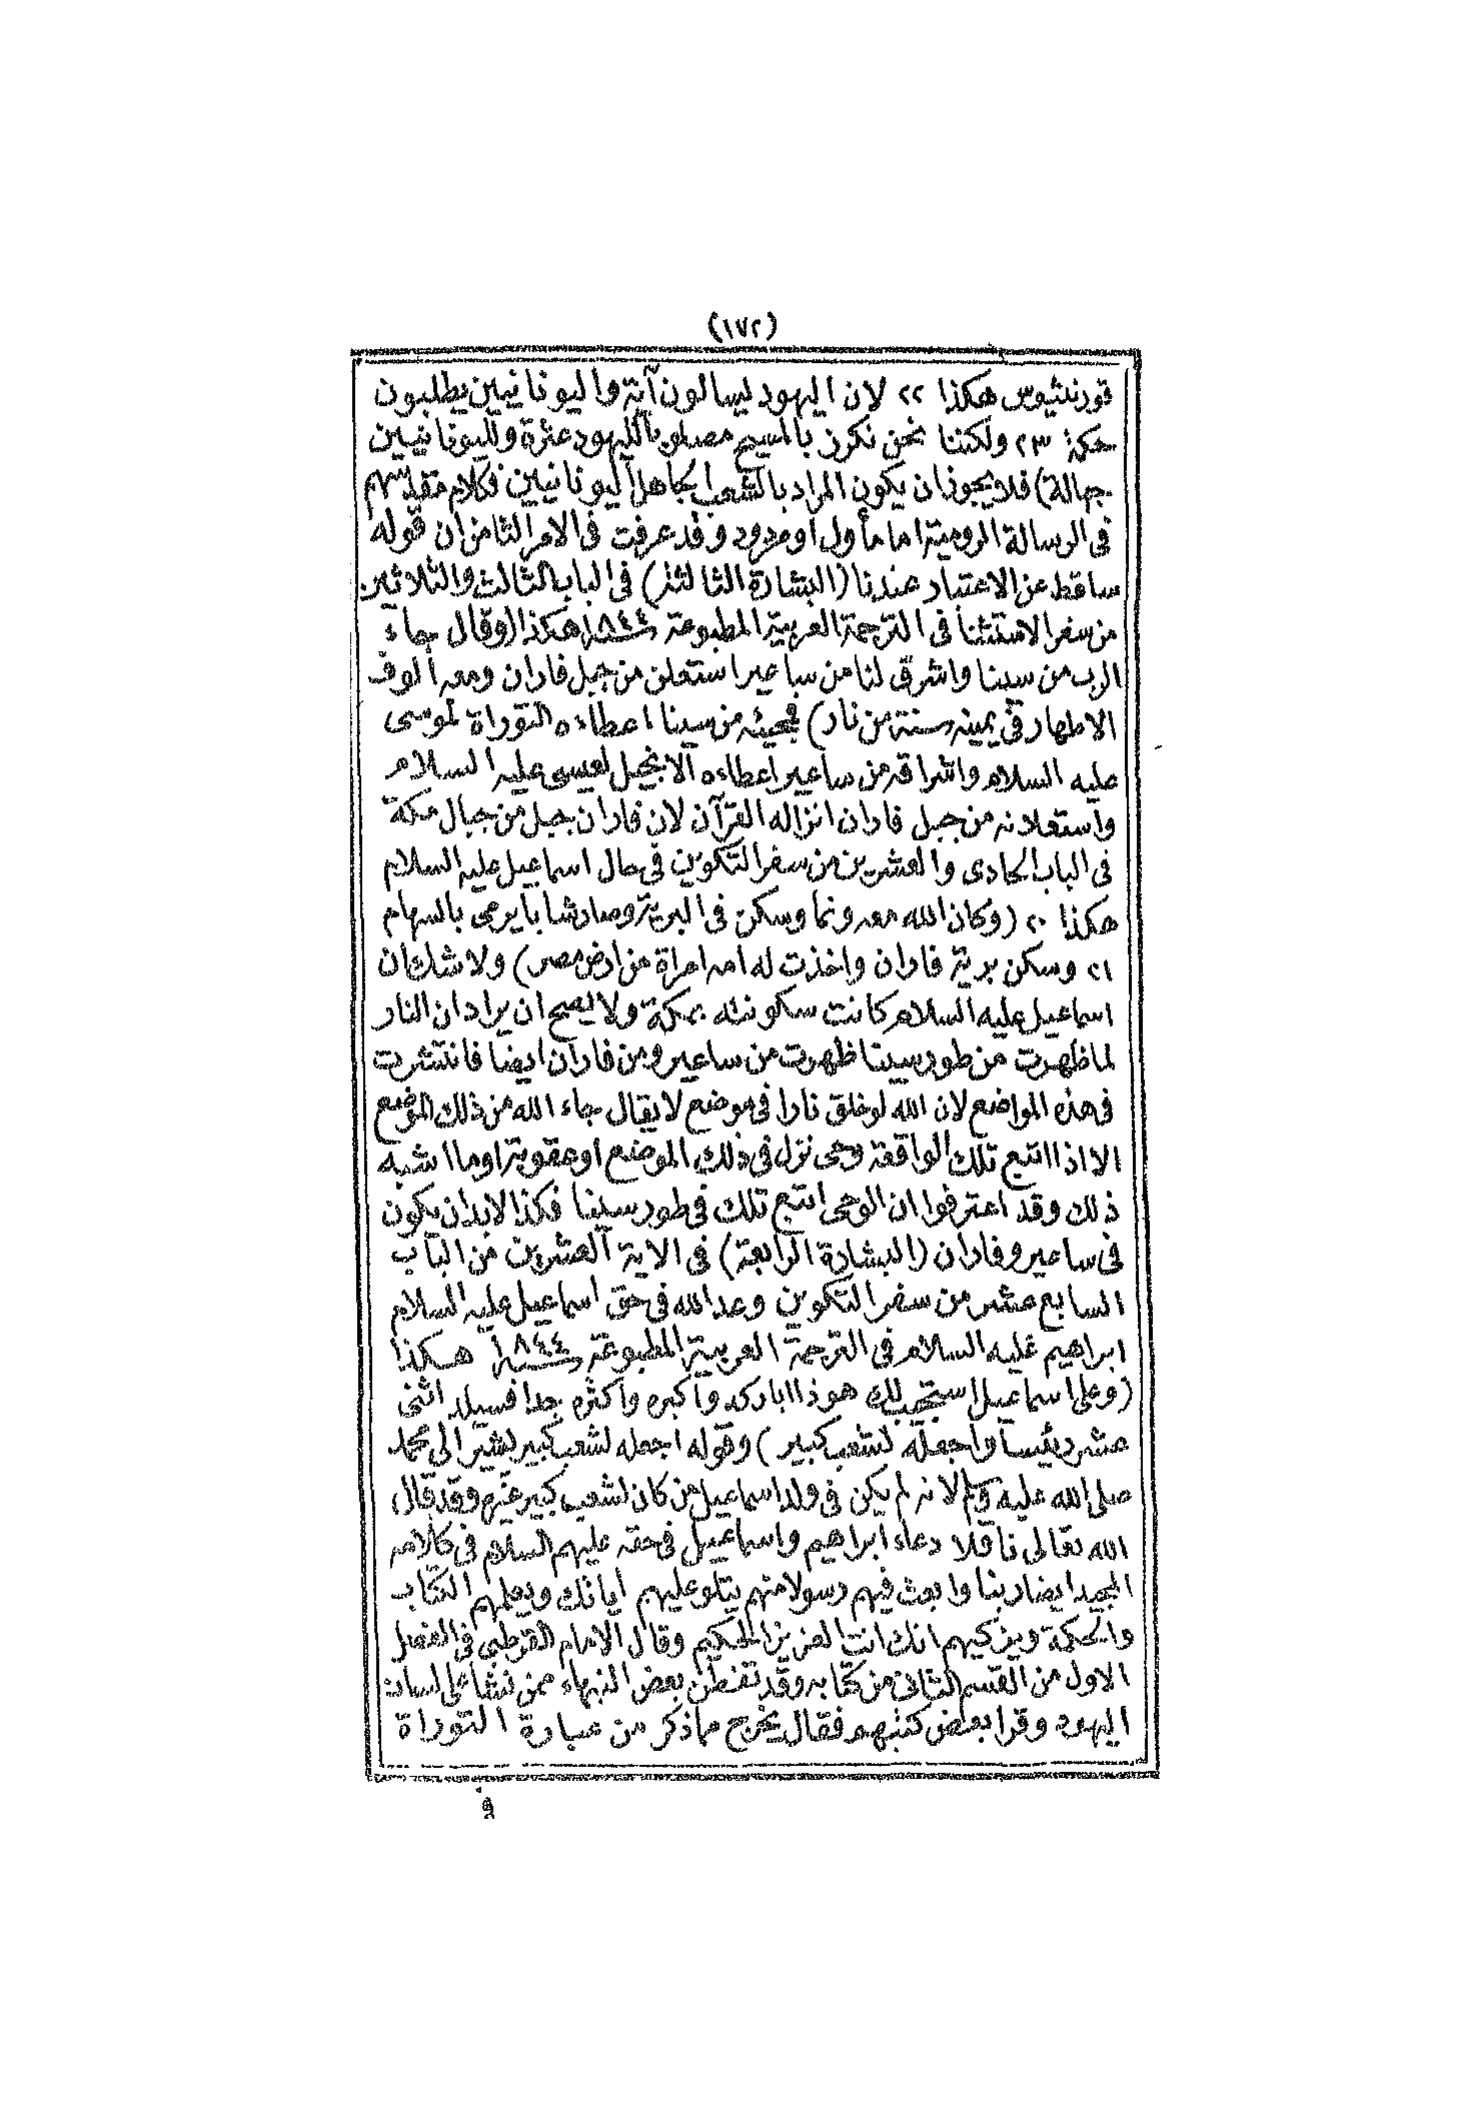 (١٧٢)
قورنثيوس هكذا ٢٢ لان اليهود يسالون آية واليونانيين يطلبون
حكمة ٢٣ ولكننا نحن نكرز بالمسيح مصلوبا لليهود عثرة ولليونانيين
جهالة) فلا يجوز ان يكون المراد بالشعب الجاهل اليونانيين فكلام مقدسهم
فى الرسالة الرومية اما مأول او مردود وقد عرفت فى الامر الثامن ان قوله
ساقط عن الاعتبار عندنا (البشارة الثالثة) فى الباب الثالث والثلاثين
من سفر الاستثنا فى الترجمة العربية المطبوعة سنة ١٨٤٤ هكذا (وقال جاء
الرب من سينا واشرق لنا من ساعير استعلن من جبل فاران ومعه الوف
الاطهار فى يمينه سنة من نار) فجيئه من سينا اعطاءه التوراة لموسى
عليه السلام واشراقه من ساعير اعطاءه الانجيل لعيسى عليه السلام
واستعلانه من جبل فاران انزاله القرآن لان فاران جبل من جبال مكة
فى الباب الحادى والعشرين من سفر التكوين فى حال اسماعيل عليه السلام
هكذا ٢٠ (وكان الله معه ونما وسكن فى البرية وصار شابا يرمى بالسهام
٢١ وسكن برية فاران واخذت له امه امراة من ارض مصر) ولا شك ان
اسماعيل عليه السلام كانت سكونته بمكة ولا يصح ان يراد ان النار
لما ظهرت من طور سينا ظهرت من ساعير ومن فاران ايضا فانتشرت
فى هذه المواضع لان الله لو خلق نارا فى موضع لا يقال جاء الله من ذلك الموضع
الا اذا اتبع تلك الواقعة وحى نزل فى ذلك الموضع او عقوبة او ما اشبه
ذلك وقد اعترفوا ان الوحى اتبع تلك فى طور سينا فكذا لابد ان يكون
فى ساعير وفاران (البشارة الرابعة) فى الاية العشرين من الباب
السابع عشر من سفر التكوين وعد الله فى حق اسماعيل عليه السلام
ابراهيم عليه السلام فى الترجمة العربية المطبوعة سنة ١٨٤٤ هكذا
(وعلى اسماعيل استجيب لك هوذا اباركه واكبره واكثره جدا فسيلد اثنى
عشر رئيسا واجعله لشعب كبير) وقوله اجعله لشعب كبير يشير الى محمد
صلى الله عليه وسلم لانه لم يكن فى ولد اسماعيل من كان لشعب كبير غيره وقد قال
الله تعالى ناقلا دعاء ابراهيم واسماعيل فى حقه عليهم السلام فى كلامه
المجيد ايضا ربنا وابعث فيهم رسولا منهم يتلو عليهم اياتك ويعلمهم الكتاب
والحكمة ويزكيهم انك انت العزيز الحكيم وقال الامام القرطبى فى الفصل
الاول من القسم الثانى من كتابه وقد تفطن بعض النبهاء ممن نشأ على لسان
اليهود وقرا بعض كتبهم فقال يخرج مما ذكر من عبارة التوراة